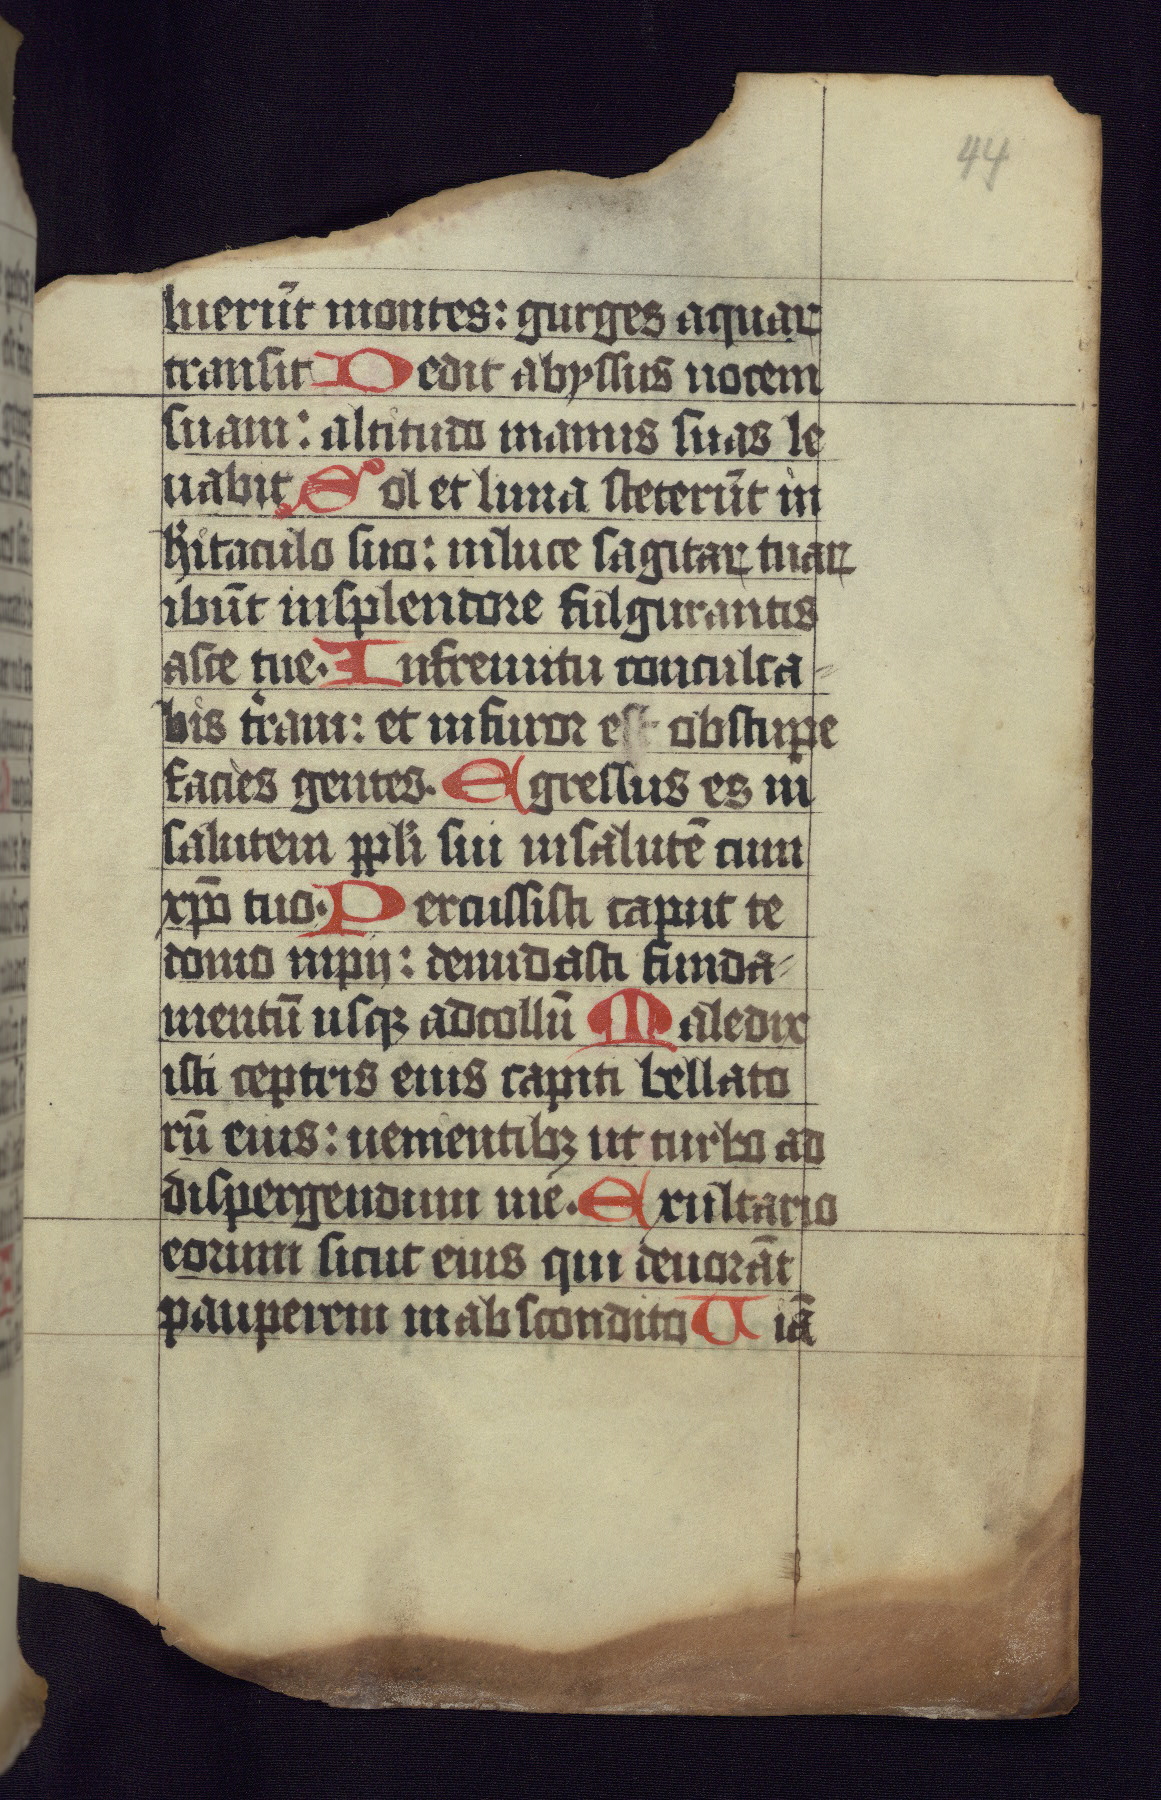 44
luerūt montes: gurges aquaꝝ
transit Dedit abyssus uocem
suam: altitudo manus suas le
uabit Sol et luna steterūt in
h̄itaculo suo: in luce sagitaꝝ tuaꝝ
ibūt in splendore fulgurantis
aste tue. In fremitu conculca-
bis t̄ram: et in furor est obstupe
facies gentes. Egressus es in
salutem ppl̄i sui in salutē cum
xp̄o tuo. Percussisti caput te
domo inpij: denudasti funda-
mentū usqꝫ ad collū Maledix
isti ceptris eius capiti bellato
rū eius: uementibꝫ ut turbo ad
dispergendum me. Exultatio
eorum sicut eius qui deuorāt
pauperem in abscondito Uiā